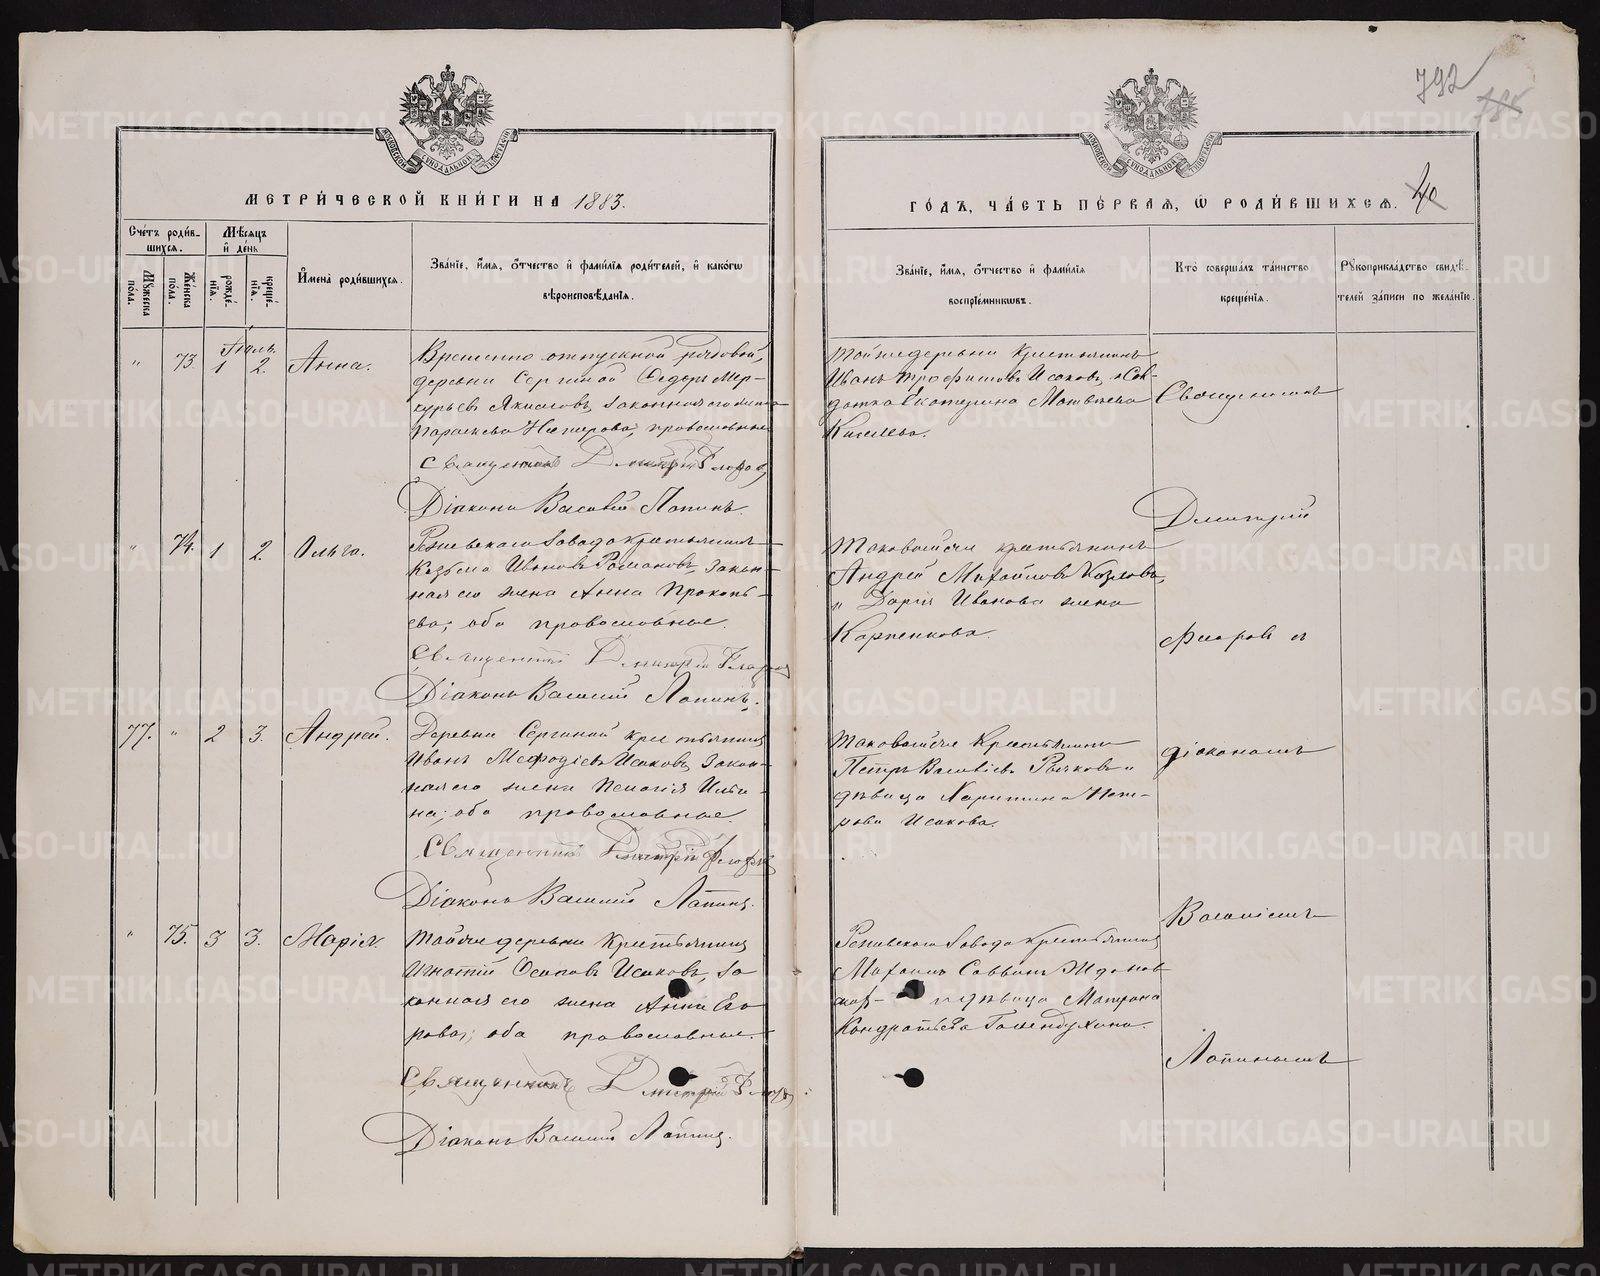 792
785
МОСКОВСКОЙ СѴНОДАЛЬНОЙ ТИПОГРАФІИ
МОСКОВСКОЙ СѴНОДАЛЬНОЙ ТИПОГРАФІИ
МЕТРИ́ЧЕСКОЙ КНИ́ГИ НА 1883.
ГО́ДЪ, ЧА́СТЬ ПЕ́РВАЯ, Ѿ РОДИ́ВШИХСЯ. 40
Сче́тъ роди́в-
шихся.
Му́жеска
по́ла.
Же́нска
по́ла.
Мѣ́сяцъ
и̂ де́нь
рожде́-
нія.
креще́-
нія.
И̂мена̀ роди́вшихся.
Зва́ніе, и̂́мя, ѻ̂́тчество и̂ фами́лія роди́телей, и̂ како́гѡ
вѣроисповѣ́данія.
Зва́ніе, и̂́мя, ѻ̂́тчество и̂ фами́лія
воспріе́мникѡвъ.
Кто̀ соверша́лъ та́инство
креще́нія.
Рꙋкоприкла́дство свидѣ́-
телей за́писи по жела́нію.
" 73. Іюль. 1 2. Анна.
Временно отпускной рядовой,
деревни Сергиной Ѳедоръ Мер-
курьевъ Якимовъ, законная его жена
Параскева, православные
Священникъ Димитрій Флоровъ
Діаконъ Василій Лапинъ.
Тойже деревни Крестьянинъ
Иванъ Трофимовъ Исаковъ и Сол-
датка Екатерина Матвѣева
Киселева.
" 74. 1 2. Ольга.
Режевскаго Завода крестьянинъ
Козьма Ивановъ Романовъ, Закон-
ная его жена Анна Прокопь-
ева; оба православные.
Священникъ Димитрій Флоровъ
Діаконъ Василій Лапинъ.
Таковойже крестьянинъ
Андрей Михайловъ Козловъ,
и Дарія Иванова жена
Карпенкова.
77. " 2 3. Андрей.
Деревни Сергиной крестьянинъ
Иванъ Меѳодіевъ Исаковъ, Закон-
ная его жена Пелагія Ильи-
на; оба православные.
Священникъ Димитрій Флоровъ
Діаконъ Василій Лапинъ.
Таковойже Крестьянинъ
Петръ Васильевъ Рычковъ и
дѣвица Харитина Пет-
рова Исакова.
" 75. 3 3. Марія.
Тойже деревни Крестьянинъ
Игнатій Осиповъ Исаковъ, За
конная его жена Анна Его
рова; оба православные.
Священникъ Димитрій Флоровъ
Діаконъ Василій Лапинъ.
Режевскаго Завода крестьянинъ
Михаилъ Саввинъ Ждановъ
и дѣвица Матрона
Кондратьева Голендухина.
Священникъ
Димитрій
Флоровъ съ
діакономъ
Василіемъ
Лапинымъ
METRIKI.GASO-URAL.RU